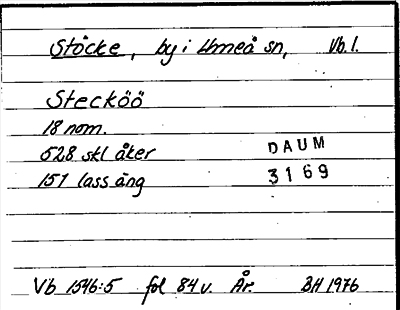 Stöcke, by i Umeå sn, Vb l.
Stecköö
18 nom.
628 skl åker
DAUM
151 lass äng
3169
Vb 1546:5 fol 84 v. År. BH 1976